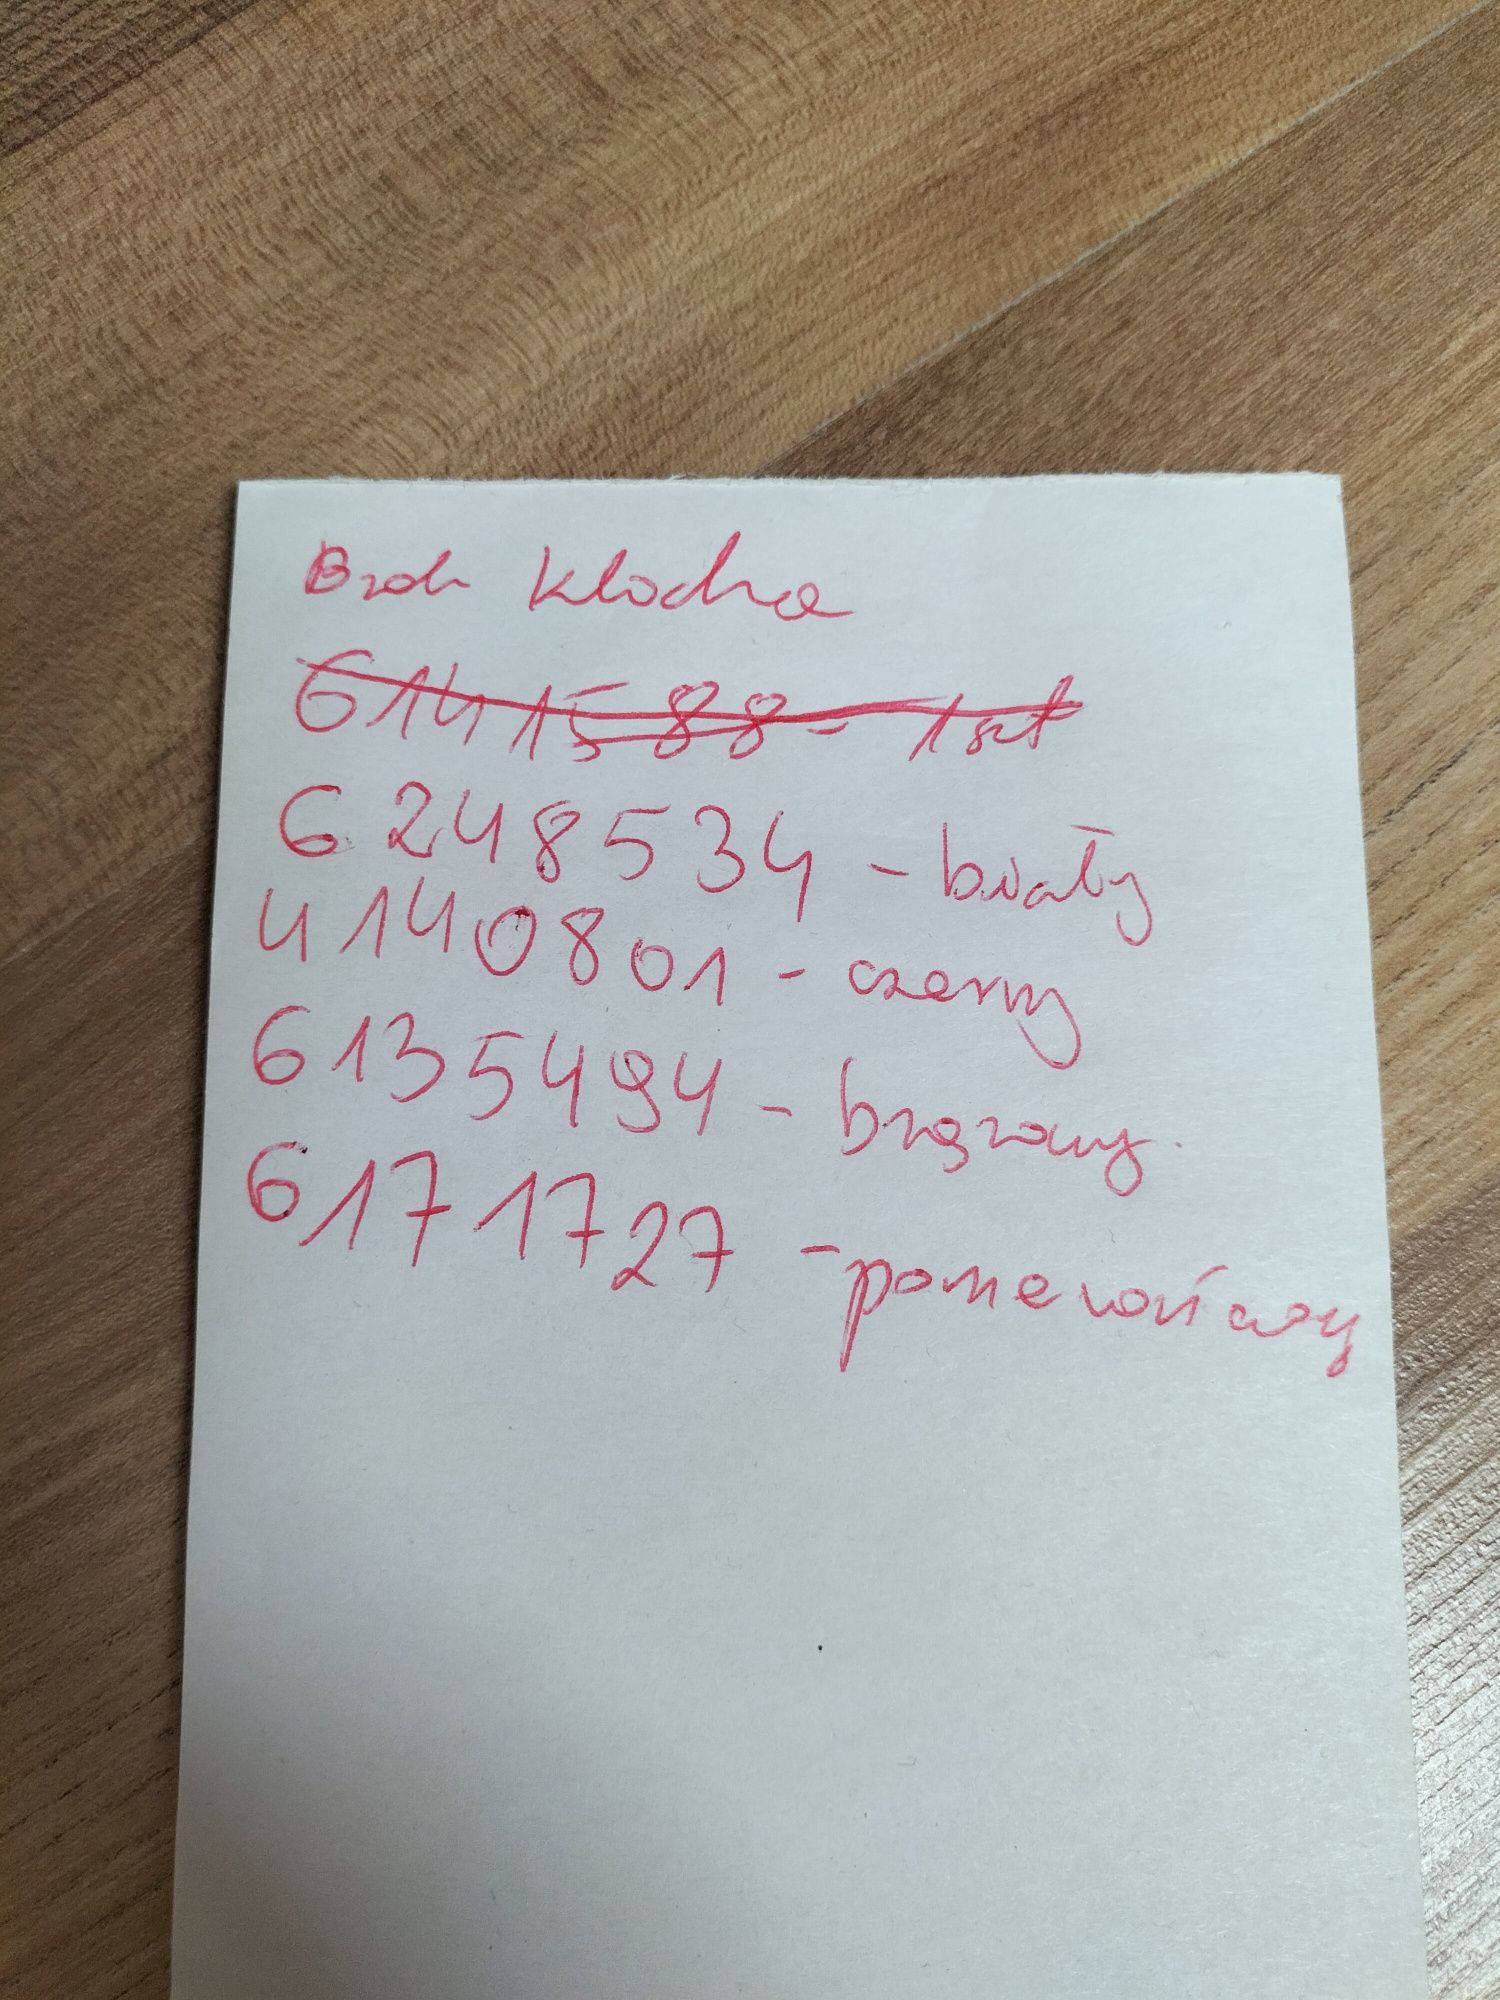 Brak klocka
6141588 - 1szt
6248534 - biały
4140801 - czarny
6135494 - brązowy.
6171727 - pomerańczowy